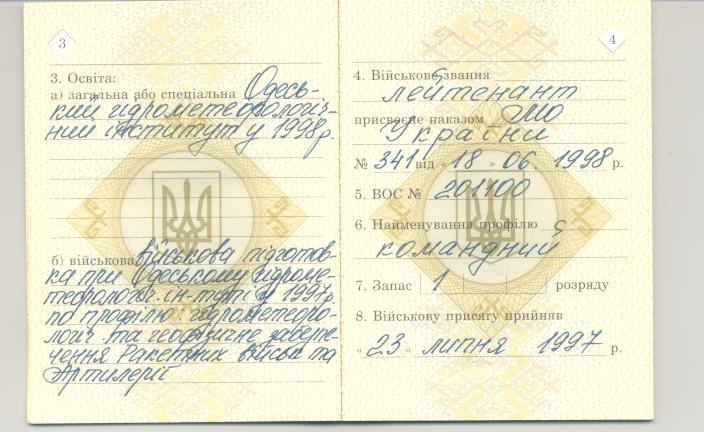 3
3. Освіта:
а) загальна або спеціальна Одесь-
кий гідрометеорологіч-
ний інститут у 1998 р.
б) військова військова підготов-
ка при Одеському гідроме-
теорологіч. ін-туті у 1997р.
по профілю: гідрометеоро-
логіч та геофізичне забезпе-
чення Ракетних військ та
Артилерії
4
4. Військове звання
лейтенант
присвоєне наказом МО
України
№ 341 від « 18 » 06. 1998 р.
5. ВОС № 201100
6. Найменування профілю
командний
7. Запас 1 розряду
8. Військову присягу прийняв
« 23 » липня 1997 р.